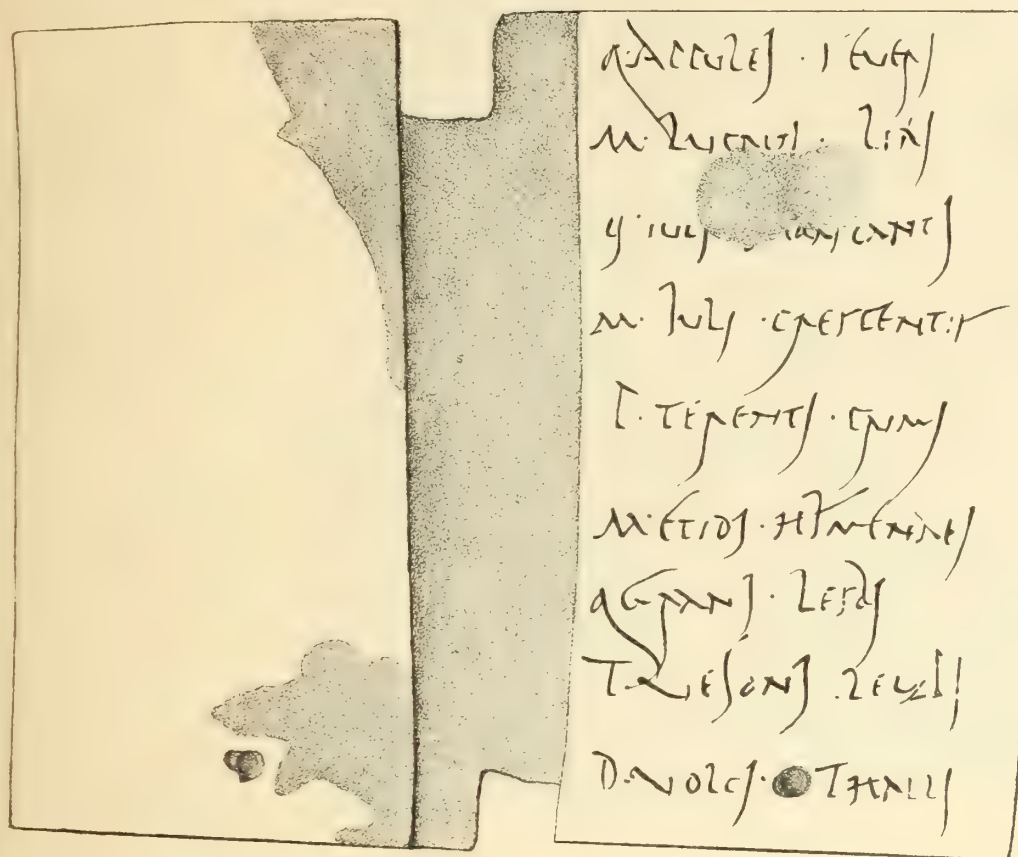 Q · APPULEI · SEVERI
M · LUCRETI · LERI
IULI
M · IULI · CRESCENTIS
C · TERENTI · PRIMI
M · EPIDI · HYMENAEI
Q GRANI · LESBI
T · VESONI
D · VOLCI · THALLI